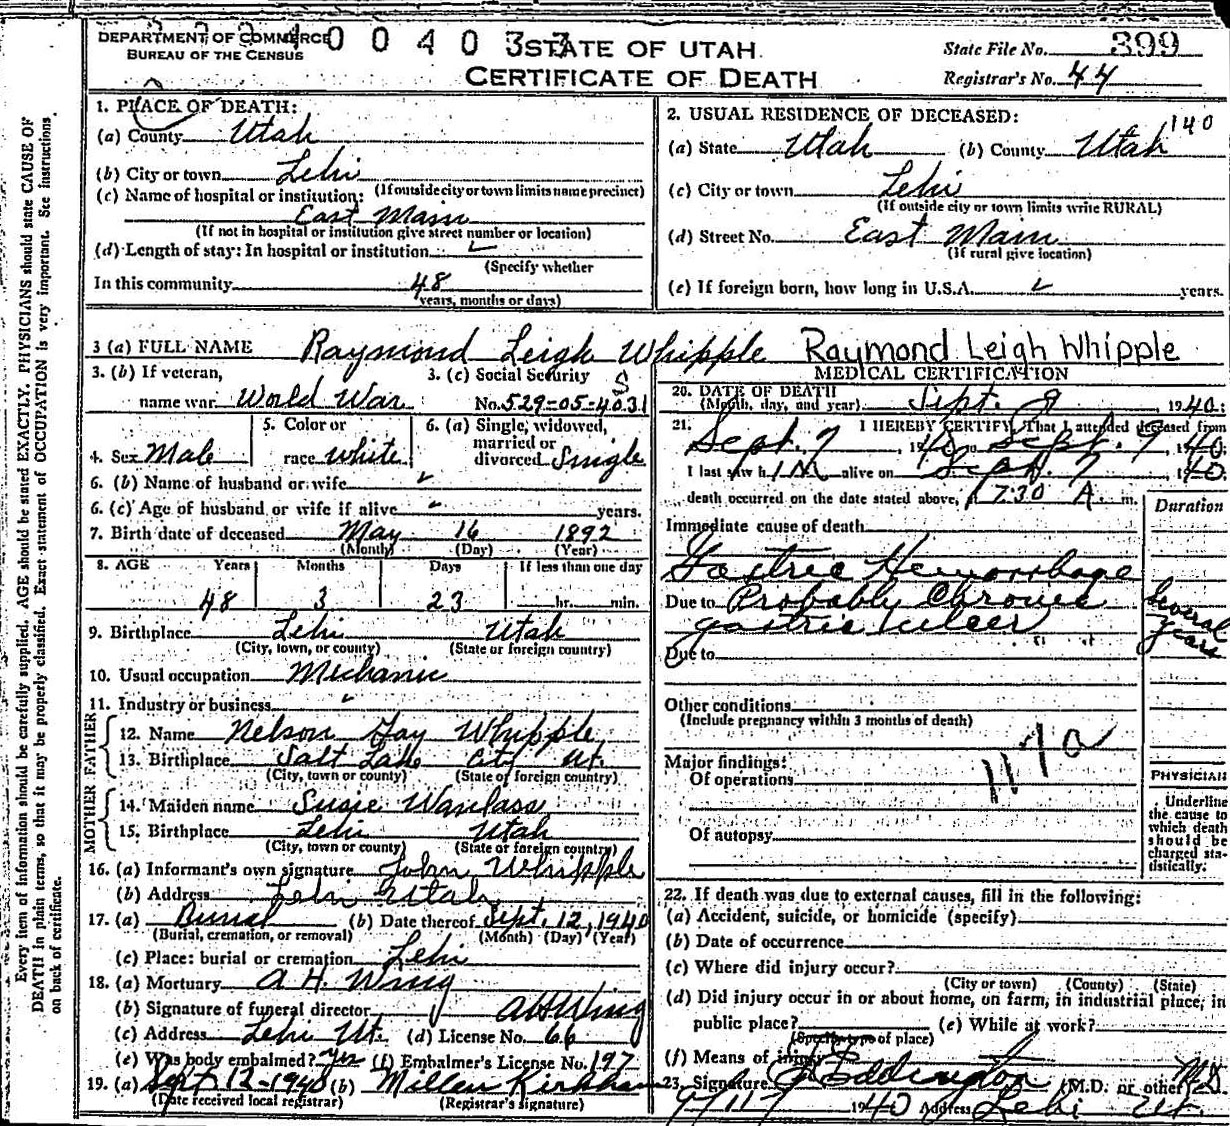 DEPARTMENT OF COMMERCE
BUREAU OF THE CENSUS
0 0 4 0 3 3
STATE OF UTAH
CERTIFICATE OF DEATH
State File No. 399
Registrar's No. 44
1. PLACE OF DEATH:
(a) County Utah
(b) City or town Lehi
(If outside city or town limits name precinct)
(c) Name of hospital or institution:
East Main
(If not in hospital or institution give street number or location)
(d) Length of stay: In hospital or institution
(Specify whether
In this community 48
years, months or days)
2. USUAL RESIDENCE OF DECEASED:
140
(a) State Utah (b) County Utah
(c) City or town Lehi
(If outside city or town limits write RURAL)
(d) Street No. East Main
(If rural give location)
(e) If foreign born, how long in U.S.A. years.
3 (a) FULL NAME Raymond Leigh Whipple Raymond Leigh Whipple
3. (b) If veteran,
name war World War
3. (c) Social Security
S
No. 529-05-4031
4. Sex Male
5. Color or
race white
6. (a) Single, widowed,
married or
divorced Single
6. (b) Name of husband or wife
6. (c) Age of husband or wife if alive years.
7. Birth date of deceased May 16 1892
(Month) (Day) (Year)
8. AGE Years Months Days If less than one day
48 3 23 hr. min.
9. Birthplace Lehi Utah
(City, town, or county) (State or foreign country)
10. Usual occupation Mechanic
11. Industry or business
FATHER
12. Name Nelson Gay Whipple
13. Birthplace Salt Lake City Ut.
(City, town or county) (State of foreign country)
MOTHER
14. Maiden name Susie Wanlass
15. Birthplace Lehi Utah
(City, town or county) (State or foreign country)
16. (a) Informant's own signature John Whipple
(b) Address Lehi Utah
17. (a) Burial (b) Date thereof Sept. 12, 1940
(Burial, cremation, or removal) (Month) (Day) (Year)
(c) Place: burial or cremation Lehi
18. (a) Mortuary A. H. Wing
(b) Signature of funeral director A H Wing
(c) Address Lehi Ut. (d) License No. 66
(e) Was body embalmed? yes (f) Embalmer's License No. 197
19. (a) Sept. 12-1940 (b) Millen Kirkham
(Date received local registrar) (Registrar's signature)
MEDICAL CERTIFICATION
20. DATE OF DEATH
(Month, day, and year) Sept. 9 1940.
21. I HEREBY CERTIFY, That I attended deceased from
Sept. 7 1940 to Sept. 9 1940.
I last saw h im alive on Sept. 7 1940.
death occurred on the date stated above, 7:30 A. m.
Duration
Immediate cause of death
Gastric Hemorrhage
Due to Probably Chronic
gastric ulcer
several
years
Due to
Other conditions
(Include pregnancy within 3 months of death)
117a
Major findings:
Of operations
Of autopsy
PHYSICIAN
Underline
the cause to
which death
should be
charged sta-
tistically.
22. If death was due to external causes, fill in the following:
(a) Accident, suicide, or homicide (specify)
(b) Date of occurrence
(c) Where did injury occur?
(City or town) (County) (State)
(d) Did injury occur in or about home, on farm, in industrial place, in
public place? (e) While at work?
(Specify type of place)
(f) Means of injury
23. Signature Eddington (M.D. or other) M.D.
9/11 1940 Address Lehi Ut.
Every item of information should be carefully supplied. AGE should be stated EXACTLY. PHYSICIANS should state CAUSE OF
DEATH in plain terms, so that it may be properly classified. Exact statement of OCCUPATION is very important. See instructions
on back of certificate.